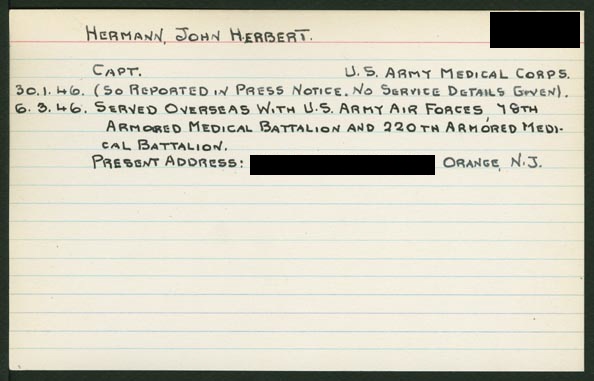 HERMANN, JOHN HERBERT.
CAPT. U.S. ARMY MEDICAL CORPS.
30.1.46. (SO REPORTED IN PRESS NOTICE. NO SERVICE DETAILS GIVEN).
6.3.46. SERVED OVERSEAS WITH U.S. ARMY AIR FORCES, 78TH
ARMORED MEDICAL BATTALION AND 220TH ARMORED MEDI-
CAL BATTALION.
PRESENT ADDRESS: ORANGE, N.J.